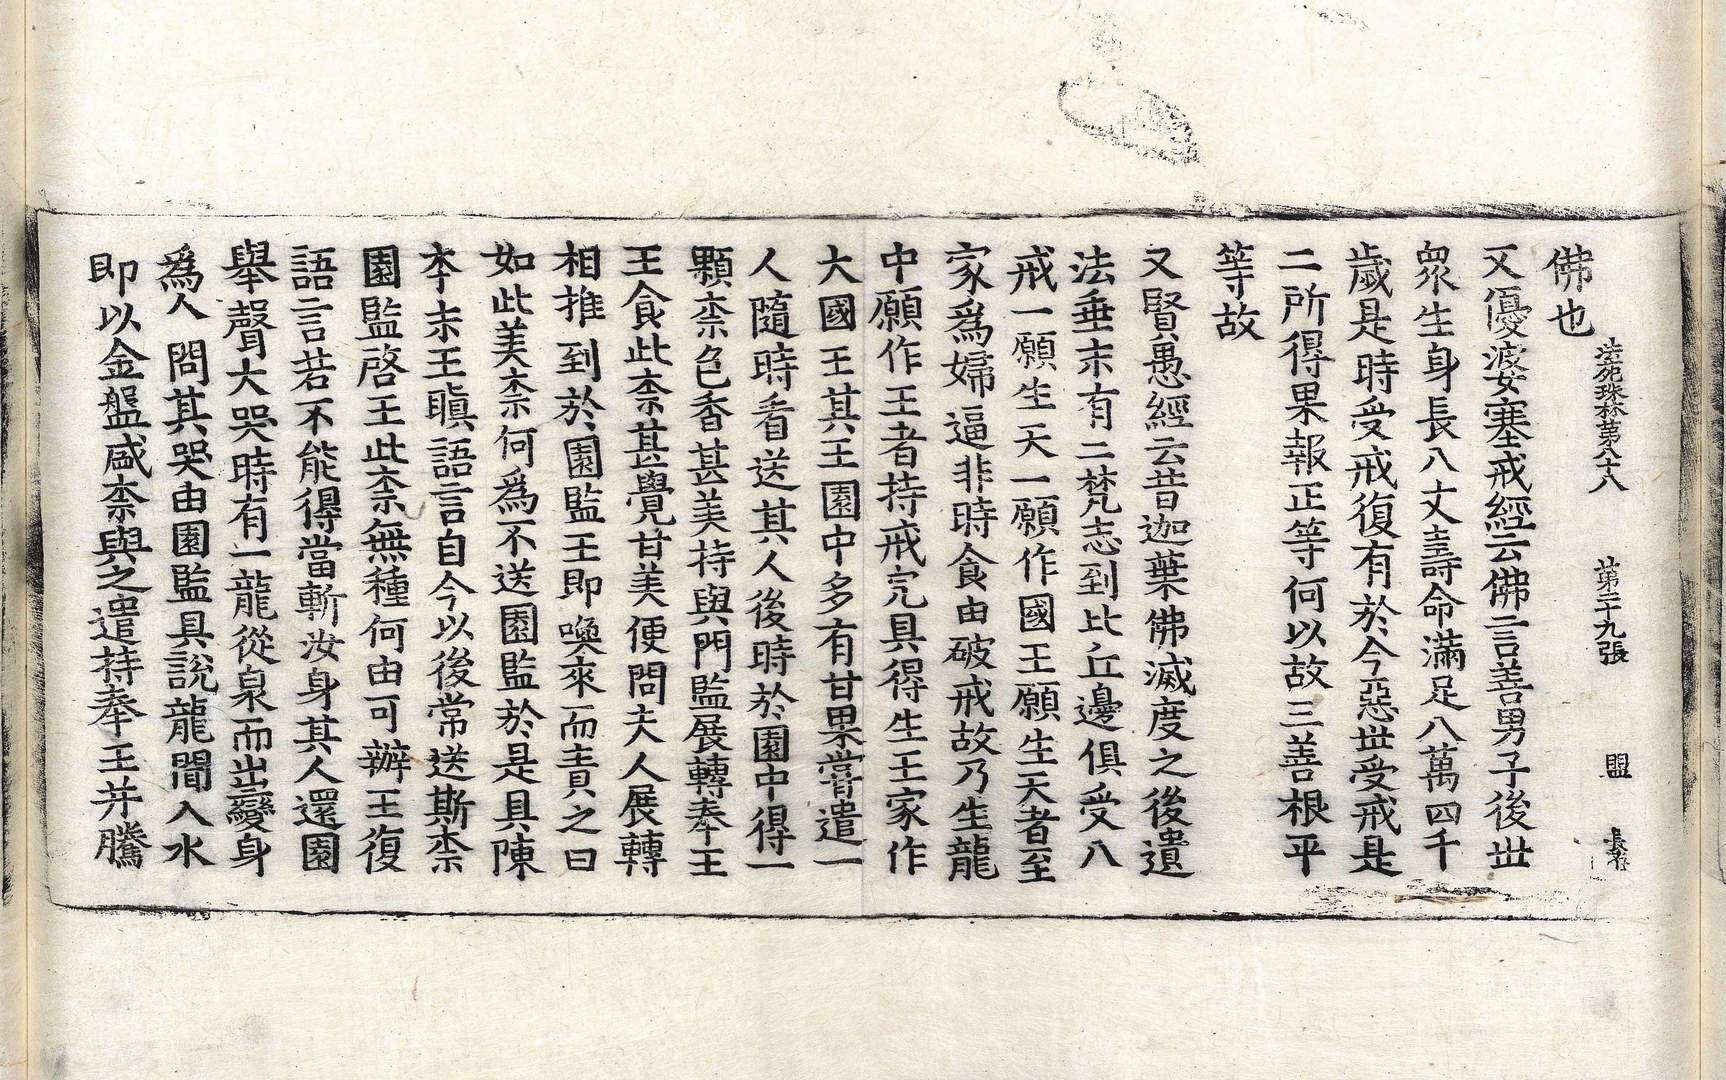 法苑珠林第八十八　第二十九張　盟
佛也
又優婆塞戒經云佛言善男子後世
衆生身長八丈壽命滿足八萬四千
歲是時受戒復有於今惡世受戒是
二所得果報正等何以故三善根平
等故
又賢愚經云昔迦葉佛滅度之後遺
法垂末有二梵志到比丘邊俱受八
戒一願生天一願作國王願生天者至
家爲婦逼非時食由破戒故乃生龍
中願作王者持戒完具得生王家作
大國王其王園中多有甘果嘗遣一
人隨時看送其人後時於園中得一
顆柰色香甚美持與門監展轉奉王
王食此柰甚覺甘美便問夫人展轉
相推到於園監王即喚來而責之曰
如此美柰何爲不送園監於是具陳
本末王瞋語言自今以後常送斯柰
園監啓王此柰無種何由可辦王復
語言若不能得當斬汝身其人還園
舉聲大哭時有一龍從泉而出變身
爲人問其哭由園監具說龍聞入水
即以金盤盛柰與之遣持奉王并騰